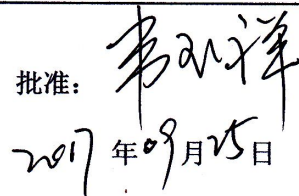 批准：韦
2017年09月25日